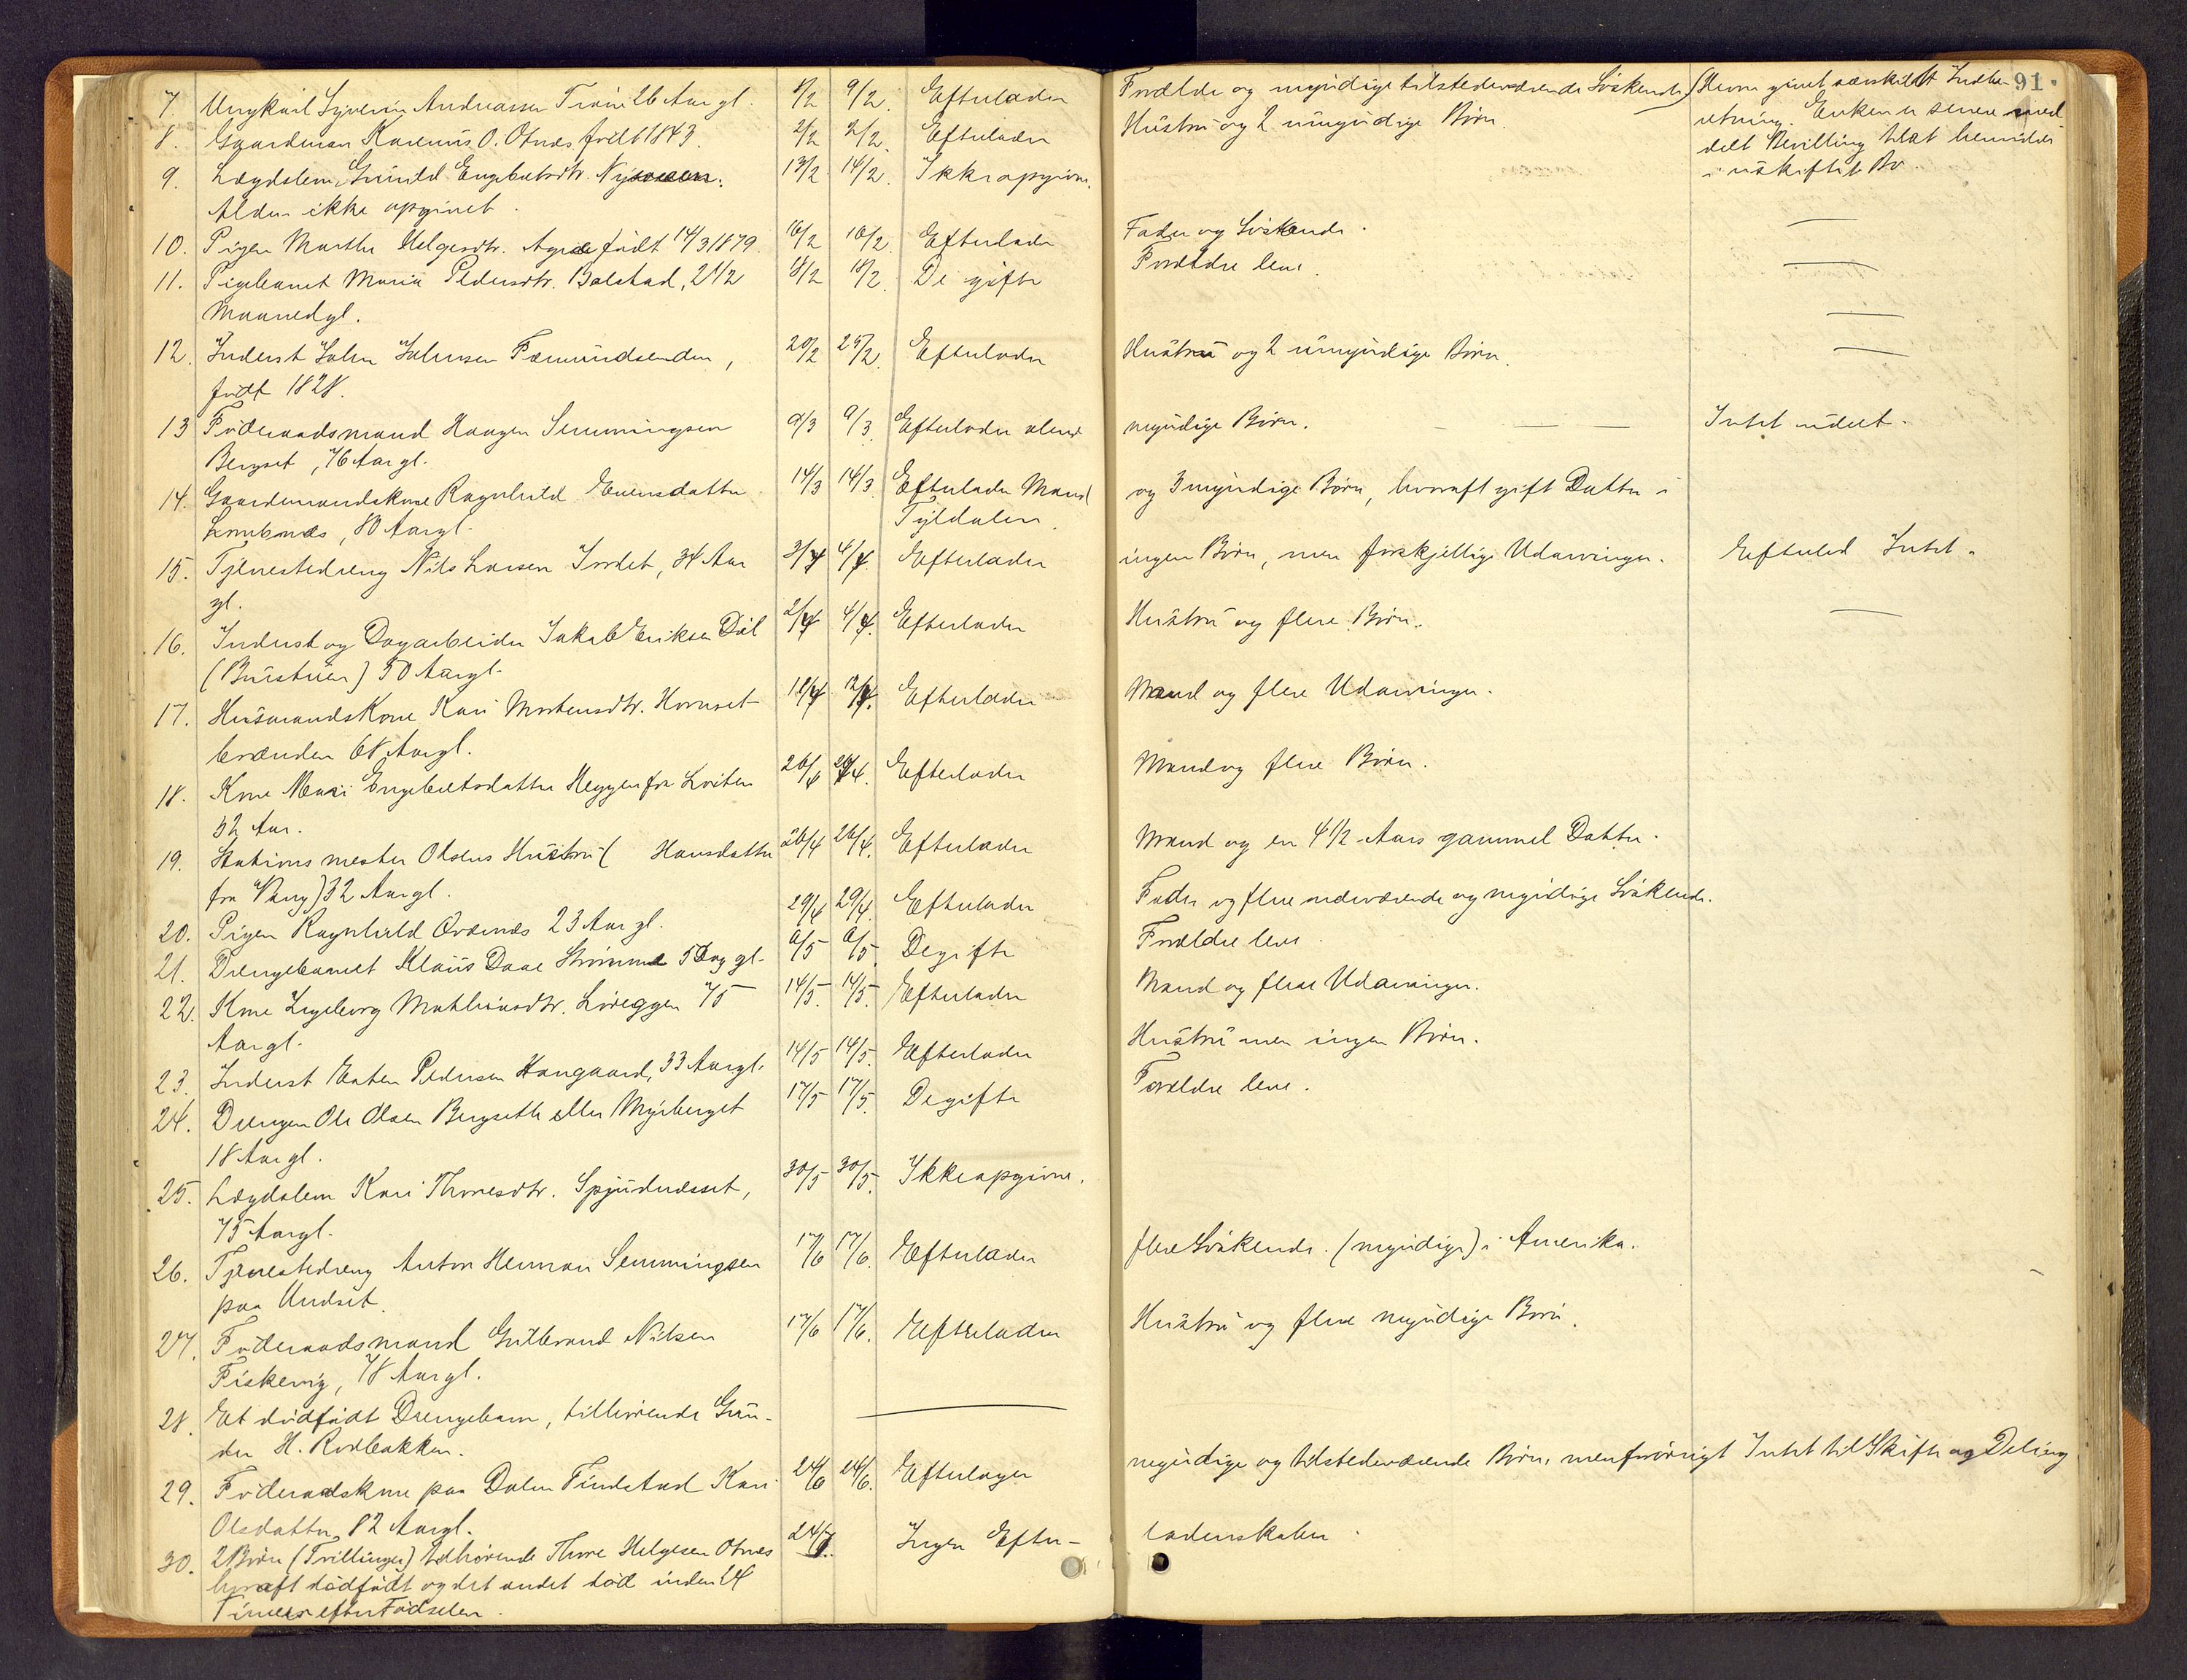 91.
7. Ungkarl Syverin Andreassen Trøen 26 Aar gl. 8/2 9/2. Efterlader Forældre og myndige tilstedeværende Søskende) (Herom givet særskildt Indbe-
retning. Enken er senere med-
8. Gaardman Karenus O. Otnes født 1843. 2/2 2/2. Efterlader Hustru og 2 umyndige Børn.
delt Bevilling til at hensidde
i uskiftet Bo.
9. Lægdslem Gunild Engebretsdtr. 13/2 14/2. Ikke opgivne.
Alder ikke opgivet.
10. Pigen Marthe Helgesdtr. Agre født 14/3 1879. 16/2 16/2. Efterlader Fader og Søskende. —
11. Pigebarnet Maria Pedersdtr. Bolstad, 2 1/2 18/2 18/2. De gifte Forældre leve. —
Maaned gl. —
12. Inderst John Johnsen Fæmundsenden, 20/2 25/2. Efterlader Hustru og 2 umyndige Børn. —
født 1828.
13 Føderaadsmand Haagen Semmingsen 9/3 9/3. Efterlader alene myndige Børn. — — Intet udeet.
Bergset, 76 Aar gl.
14. Gaardmandskone Ragnhild Evensdatter 14/3 14/3. Efterlader Mand og 3 myndige Børn, hvoraf 1 gift Datter i
Lombnæs, 80 Aar gl. Tyldalen.
15. Tjenestedreng Nils Larsen Jordet, 34 Aar 3/4 4/4. Efterlader ingen Børn, men forskjellige Udarvinger. Efterlod Intet.
gl.
16. Inderst og Dagarbeider Jakob Eriksen Dal 2/4 4/4. Efterlader Hustru og flere Børn. —
(Burstuen) 50 Aar gl.
17. Husmandskone Kari Mortensdtr. Hornset- 12/4 12/4. Efterlader Mand og flere Udarvinger.
brænden 68 Aar gl.
18. Kone Mari Engebretsdatter Heggen fra Løiten 26/4 26/4. Efterlader Mand og flere Børn.
32 Aar.
19. Stationsmester Olsens Hustru ( Hansdatter 26/4 26/4. Efterlader Mand og en 4 1/2 Aars gammel Datter.
fra Vang) 32 Aar gl.
20. Pigen Ragnhild Øvrenæs 23 Aar gl. 29/4 29/4. Efterlader Fader og flere nærværende og myndige Søskende.
21. Drengebarnet Klaus Daae Strømme 5 Dag gl. 6/5 6/5. De gifte Forældre leve.
22. Kone Ingeborg Mathiasdtr. Løreggen 75 14/5. 14/5. Efterlader Mand og flere Udarvinger.
Aar gl.
23. Inderst Esten Pedersen Haugaard, 33 Aar gl. 14/5 14/5. Efterlader Hustru men ingen Børn.
24. Drengen Ole Olsen Bergseth eller Myrberget 17/5 17/5. De gifte Forældre leve.
18 Aar gl.
25. Lægdslem Kari Thoresdtr. Spjudnæsset, 30/5 30/5. Ikke opgivne.
75 Aar gl.
26. Tjenestedreng Anton Herman Semmingsen 17/6 17/6. Efterlader flere Søskende. (myndige) i Amerika.
paa Undset.
27. Føderaadsmand Gulbrand Nilsen 17/6 17/6. Efterlader Hustru og flere myndige Børn.
Fiskevig, 78 Aar gl.
28. Et dødfødt Drengebarn, tilhørende Gun- —
der H. Rodbakken.
29. Føderaadskone paa Dalen Finstad Kari 24/6 24/6. Efterlager myndige og tilstedeværende Børn, men forøvrigt Intet til Skifte og Deling
Olsdatter, 82 Aar gl.
30. 2 Børn (Tvillinger) tilhørende Thore Helgesen Otnes 24/6. Ingen Efter- ladenskaber.
hvoraf 1 dødfødt og det andet død inden 24
Timer efter Fødselen.